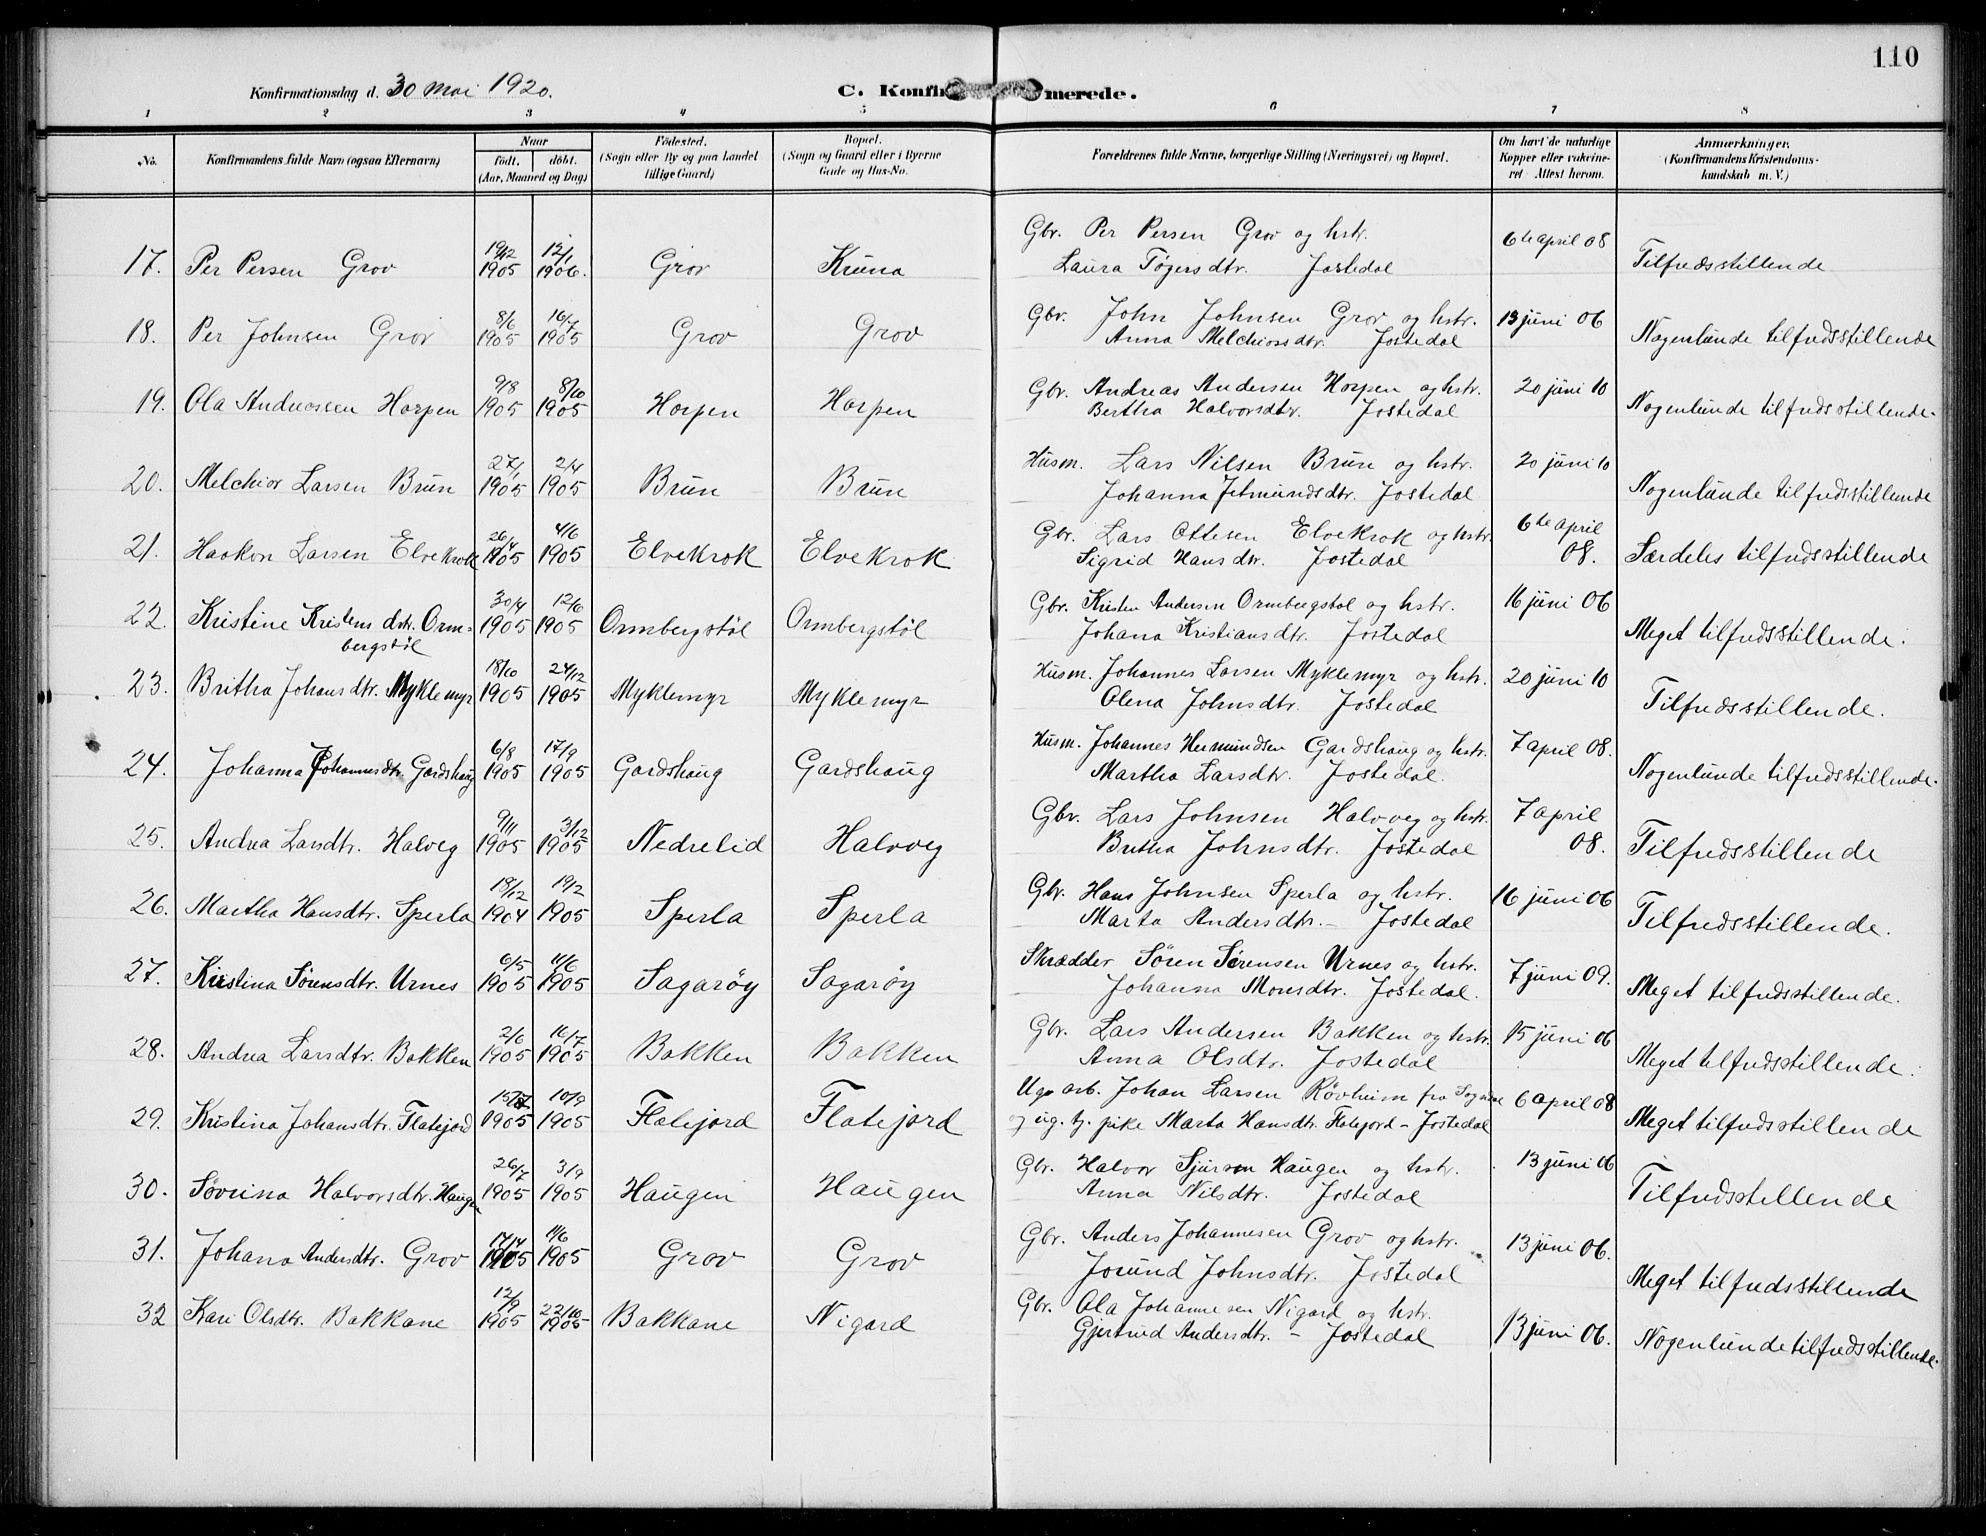 110
Konfirmationsdag d. 30 mai 1920.
C. Konfirmerede.
1 2 3 4 5 6 7 8
No.
Konfirmandens fulde Navn (ogsaa Efternavn)
Naar
født. døbt.
(Aar, Maaned og Dag)
Fødested.
(Sogn eller By og paa Landet
tillige Gaard)
Bopæl.
(Sogn og Gaard eller i Byerne
Gade og Hus-No.
Forældrenes fulde Navne, borgerlige Stilling (Næringsvei) og Bopæl.
Om havt de naturlige
Kopper eller vakcine-
ret Attest herom.
Anmærkninger.
(Konfirmandens Kristendoms-
kundskab m. V.)
17. Per Persen Grov 19/12 1905 12/1 1906. Grov Kruna Gbr. Per Persen Grov og hstr. 6te april 08 Tilfredsstillende
Laura Tøgersdtr. Jostedal
18. Per Johnsen Grov 8/6 1905 16/7 1905 Grov Grov Gbr. John Johnsen Grov og hstr. 13 juni 06 Nogenlunde tilfredsstillende
Anna Melchiorsdtr. Jostedal
19. Ola Andreassen Horpen 9/8 1905 8/10 1905 Horpen Horpen Gbr. Andreas Andersen Horpen og hstr. 20 juni 10 Nogenlunde tilfredsstillende.
Bertha Halvorsdtr. Jostedal
20. Melchior Larsen Brun 27/1 1905 2/4 1905 Brun Brun Husm. Lars Nilsen Brun og hstr. 20 juni 10 Nogenlunde tilfredsstillende
Johanna Jetmundsdtr. Jostedal
21. Haakon Larsen Elvekrok 26/4 1905 4/6 1905 Elvekrok Elvekrok Gbr. Lars Ottesen Elvekrok og hstr. 6te april 08. Særdeles tilfredsstillende
Sigrid Hansdtr. Jostedal
22. Kristine Kristensdtr. Orm-
bergstøl 30/4 1905 12/6 1905 Ormbergstøl Ormbergstøl Gbr. Kristen Andersen Ormbergstøl og hstr. 16 juni 06 Meget tilfredsstillende.
Johana Kristiansdtr. Jostedal
23. Britha Johansdtr. Myklemyr 18/10 1905 24/12 1905 Myklemyr Myklemyr Husm. Johannes Larsen Myklemyr og hstr. 20 juni 10 Tilfredsstillende.
Olena Johnsdtr. Jostedal
24. Johanna Johannesdtr. Gardshaug 6/8 1905 17/9 1905 Gardshaug Gardshaug Husm. Johannes Hermundsen Gardshaug og hstr. 7 april 08. Nogenlunde tilfredsstillende.
Martha Larsdtr. Jostedal.
25. Andrea Larsdtr. Halveg 9/11 1905 3/12 1905 Nedrelid Halvveg Gbr. Lars Johnsen Halvveg og hstr. 7 april 08. Tilfredsstillende
Britha Johnsdtr. Jostedal
26. Martha Hansdtr. Sperla 18/12 1904 19/2 1905 Sperla Sperla Gbr. Hans Johnsen Sperla og hstr. 16 juni 06 Tilfredsstillende.
Marta Andersdtr. – Jostedal
27. Kristina Sørensdtr. Urnes 6/5 1905 11/6 1905 Sagarøy Sagarøy Skrædder Søren Sørensen Urnes og hstr. 7 juni 09. Meget tilfredsstillende.
Johanna Monsdtr. Jostedal.
28. Andrea Larsdtr. Bakken 2/6 1905 16/7 1905 Bakken Bakken Gbr. Lars Andersen Bakken og hstr. 15 juni 06 Meget tilfredsstillende.
Anna Olsdtr. Jostedal
29. Kristina Johansdtr. Flatejord 1905 10/9 1905 Flatejord Flatejord Ugv arb. Johan Larsen Røvheim fra 6 april 08 Meget tilfredsstillende
og ug. tj. pike Marta Hansdtr. Flatejord – Jostedal
30. Søvrina Halvorsdtr. Haugen 26/7 1905 3/9 1905 Haugen Haugen Gbr. Halvor Sjursen Haugen og hstr. 13 juni 06 Tilfredsstillende
Anna Nilsdtr. Jostedal
31. Johana Andersdtr. Grov 17/4 1905 11/6 1905 Grov Grov Gbr. Anders Johannesen Grov og hstr. 13 juni 06. Meget tilfredsstillende
Jorund Johnsdtr. Jostedal
32 Kari Olsdtr. Bakkane 12/9 1905 22/10 1905 Bakkane Nigard Gbr. Ola Johannesen Nigard og hstr. 13 juni 06. Nogenlunde tilfredsstillende.
Gjertrud Andersdtr. – Jostedal